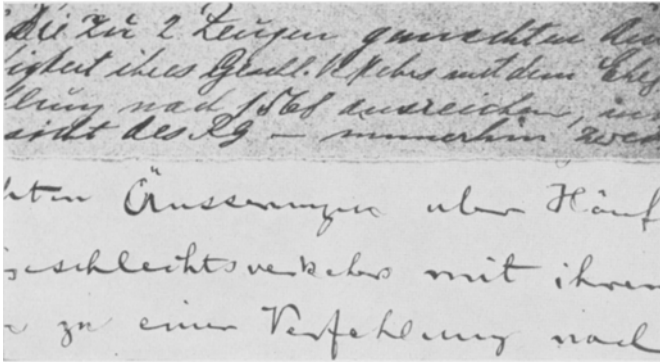 Die zu 2 Zeugen gemachten Äu
igkeit ihres Geschl. Verkehrs mit dem Eheg
llung nach 1568 ausreichen, im
sicht des RG – immerhin zwei
kten Äusserungen über Häuf
Geschlechtsverkehrs mit ihren
n zu einer Verfehlung nach